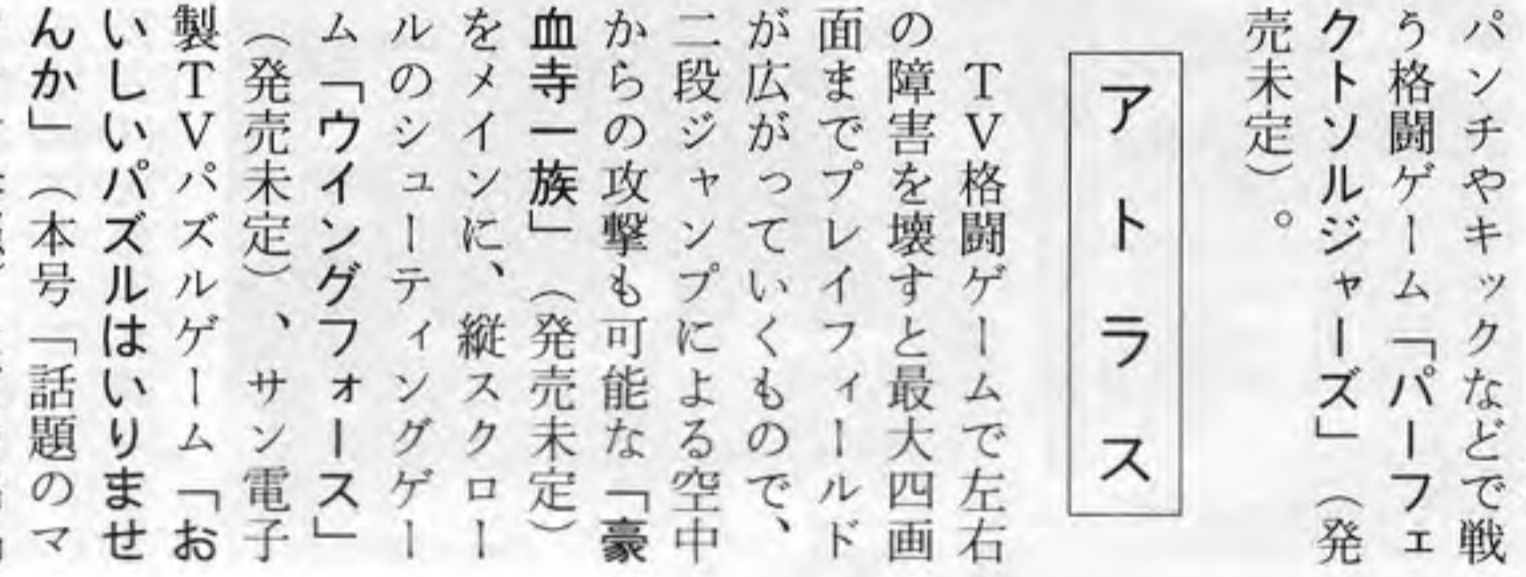 パンチやキックなどで戦
う格闘ゲーム「パーフェ
クトソルジャーズ」（発
売未定）。
アトラス
ＴＶ格闘ゲームで左右
の障害を壊すと最大四画
面までプレイフィールド
が広がっていくもので、
二段ジャンプによる空中
からの攻撃も可能な「豪
血寺一族」（発売未定）
をメインに、縦スクロー
ルのシューティングゲー
ム「ウイングフォース」
（発売未定）、サン電子
製ＴＶパズルゲーム「お
いしいパズルはいりませ
んか」（本号「話題のマ